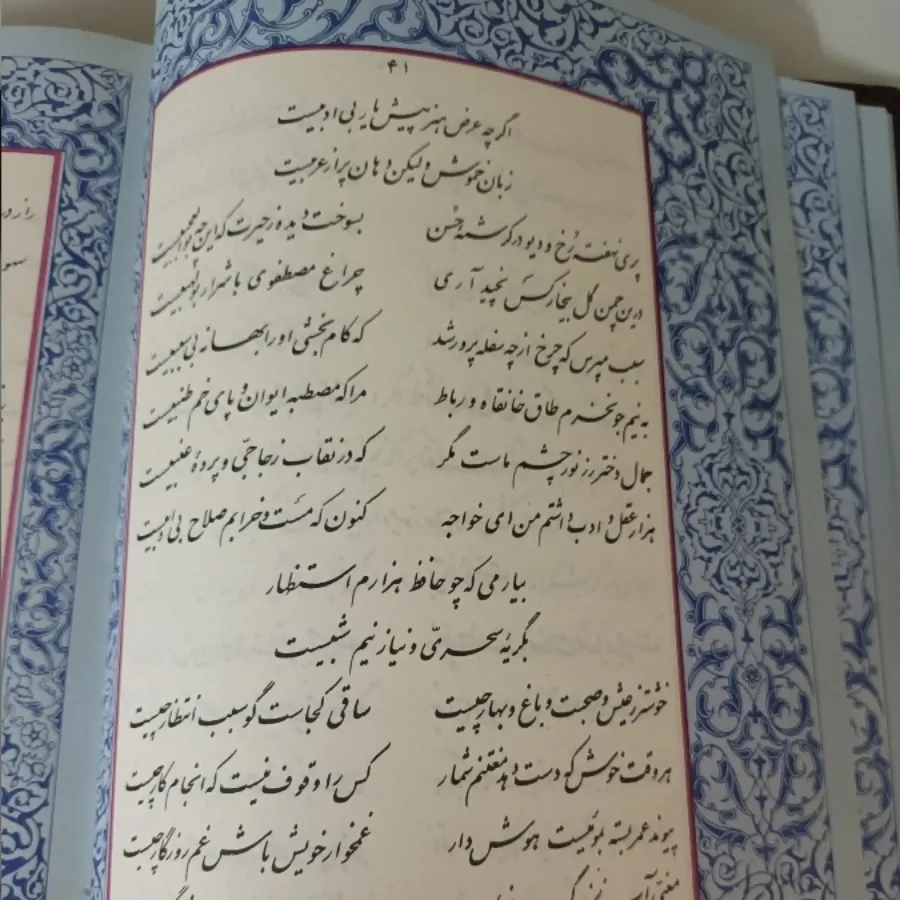 ۴۱
اگر چه عرض هنر پیش یار بی ادبیست
زبان خموش ولیکن دهان پر از عربیست
پری نهفته رخ و دیو در کرشمهٔ حُسن بسوخت دیده ز حیرت که این چه بوالعجبیست
درین چمن گل بیخار کس نچید آری چراغ مصطفوی با شرار بولهبیست
سبب مپرس که چرخ از چه سفله پرور شد که کام بخشی او را بهانه بی سببیست
به نیم جو نخرم طاق خانقاه و رباط مرا که مصطبه ایوان و پای خم طنبیست
جمال دختر رز نور چشم ماست مگر که در نقاب زجاجی و پردهٔ عنبیست
هزار عقل و ادب داشتم من ای خواجه کنون که مست و خرابم صلاح بی ادبیست
بیار می که چو حافظ هزارم استظهار
بگریهٔ سحریّ و نیاز نیم شبیست
خوشتر ز عیش و صحبت و باغ و بهار چیست ساقی کجاست گو سبب انتظار چیست
هر وقت خوش که دست دهد مغتنم شمار کس را وقوف نیست که انجام کار چیست
پیوند عمر بسته بموئیست هوش دار غمخوار خویش باش غم روزگار چیست
راز در